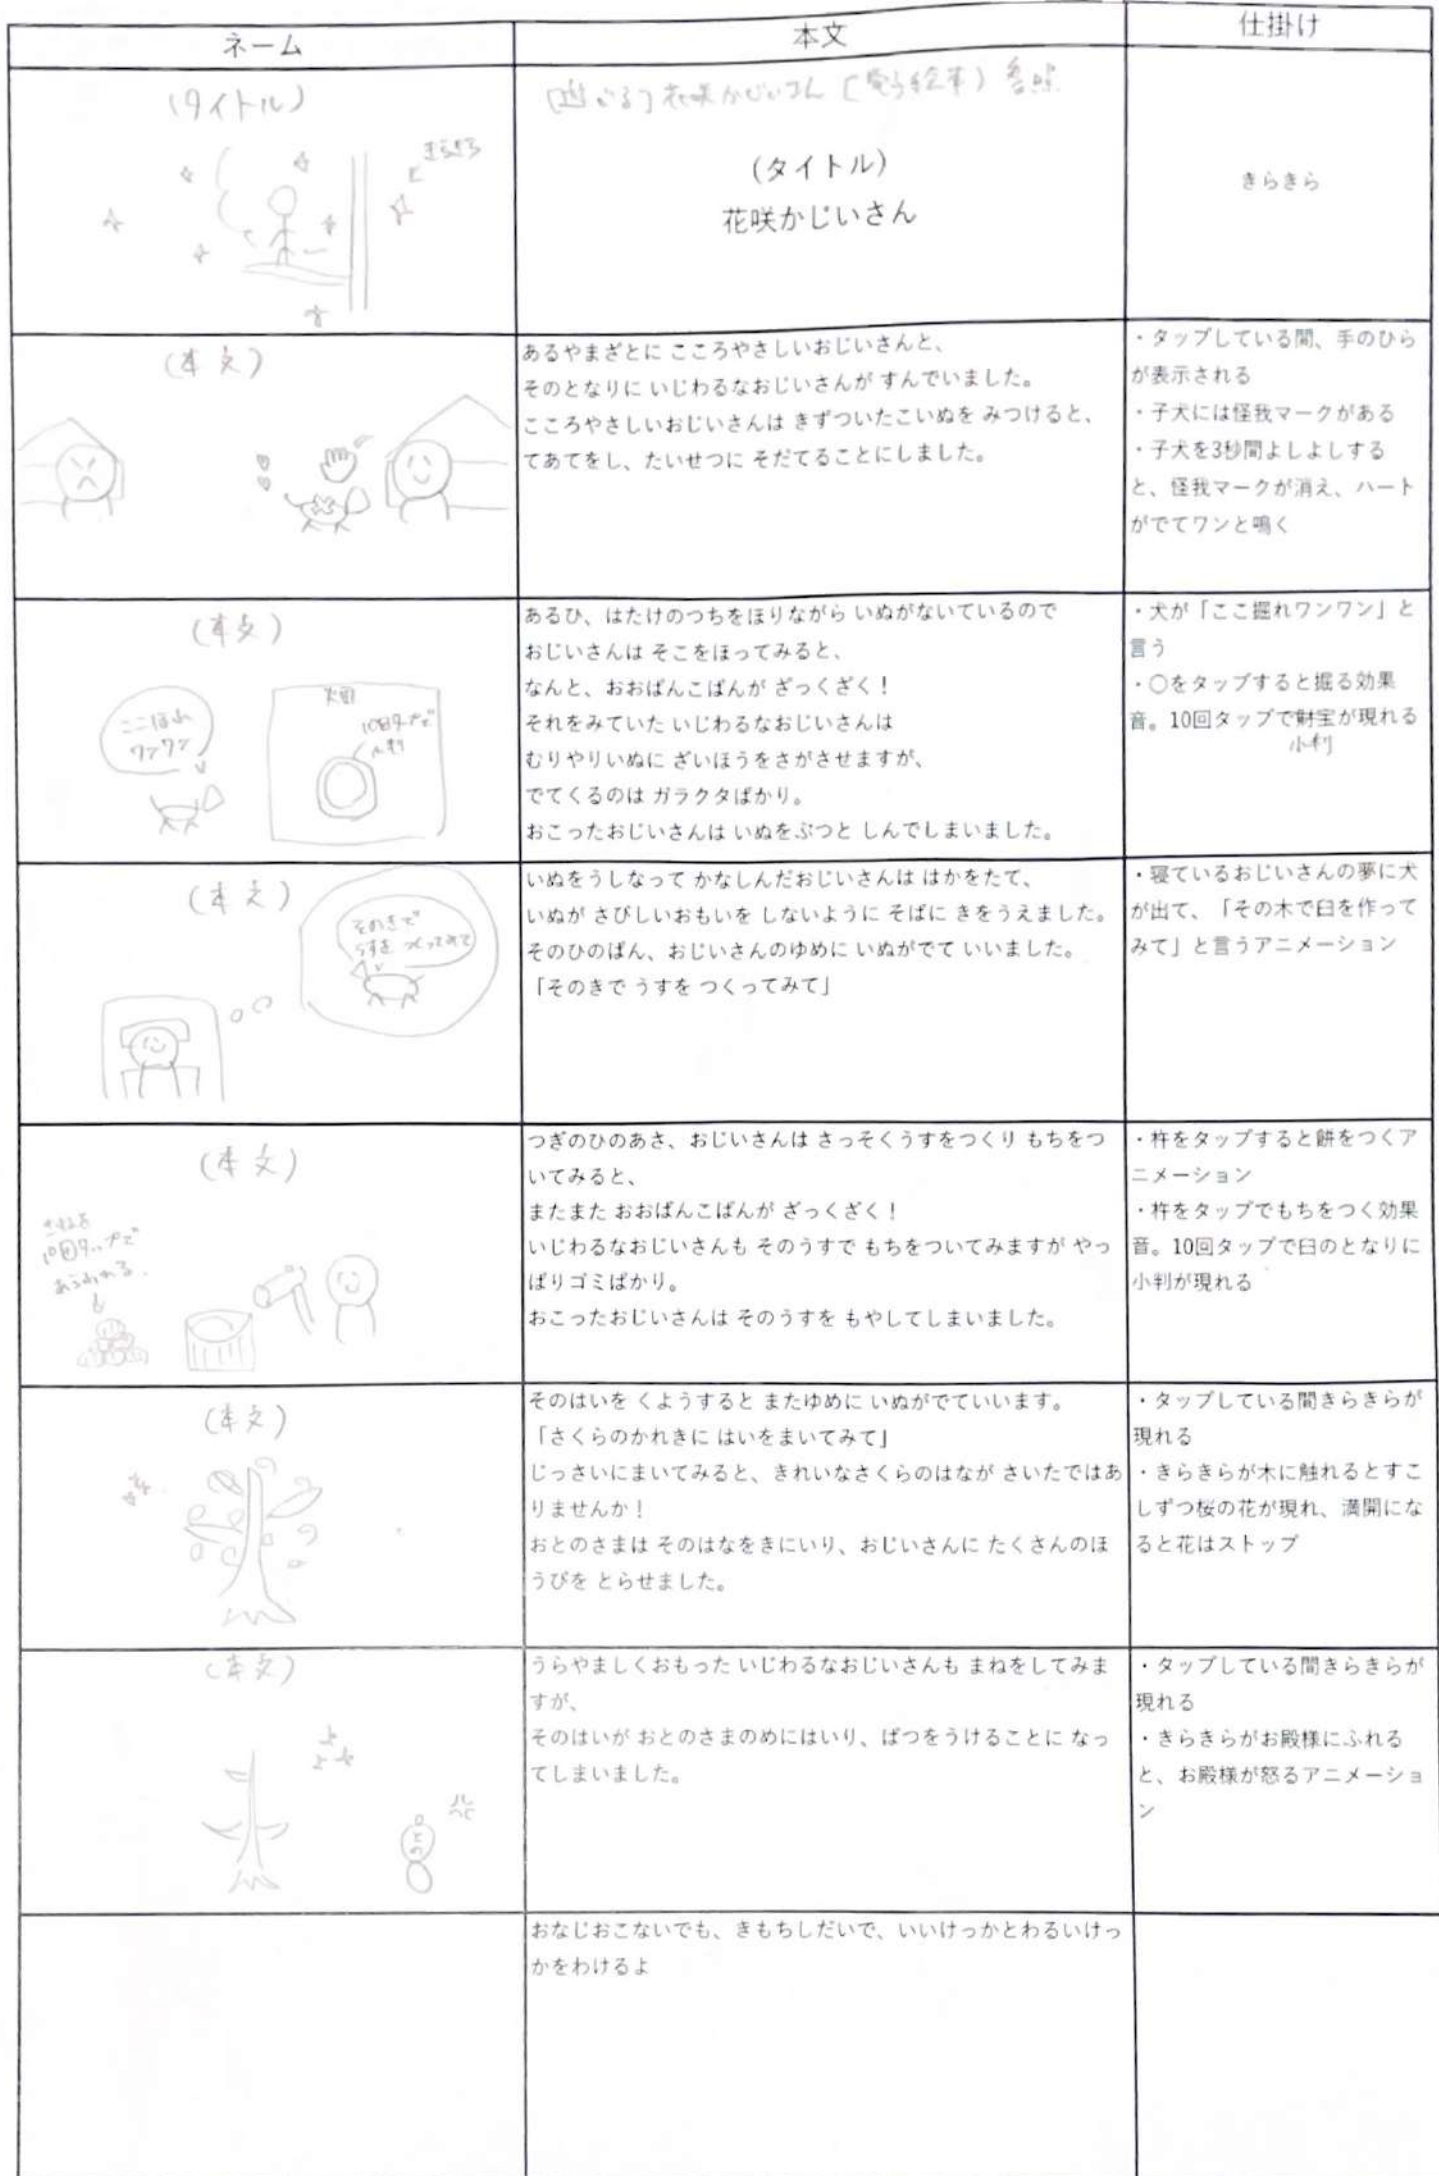 ネーム
本文
仕掛け
(タイトル)
きらきら
花咲かじいさん (電子絵本) 参照
(タイトル)
花咲かじいさん
きらきら
(本文)
あるやまざとに こころやさしいおじいさんと、
そのとなりに いじわるなおじいさんが すんでいました。
こころやさしいおじいさんは きずついたこいぬを みつけると、
てあてをし、たいせつに そだてることにしました。
・タップしている間、手のひら
が表示される
・子犬には怪我マークがある
・子犬を3秒間よしよしする
と、怪我マークが消え、ハート
がでてワンと鳴く
(本文)
ここほれ
ワンワン
大田
10回タップで
小判
あるひ、はたけのつちをほりながら いぬがないているので
おじいさんは そこをほってみると、
なんと、おおばんこばんが ざっくざく!
それをみていた いじわるなおじいさんは
むりやりいぬに ざいほうをさがさせますが、
でてくるのは ガラクタばかり。
おこったおじいさんは いぬをぶつと しんでしまいました。
・犬が「ここ掘れワンワン」と
言う
・○をタップすると掘る効果
音。10回タップで財宝が現れる
小判
(本文)
そのきで
うすを つくってみて
いぬをうしなって かなしんだおじいさんは はかをたて、
いぬが さびしいおもいを しないように そばに きをうえました。
そのひのばん、おじいさんのゆめに いぬがでて いいました。
「そのきで うすを つくってみて」
・寝ているおじいさんの夢に犬
が出て、「その木で臼を作って
みて」と言うアニメーション
(本文)
きねを
10回タップで
あらわれる.
つぎのひのあさ、おじいさんは さっそくうすをつくり もちをつ
いてみると、
またまた おおばんこばんが ざっくざく!
いじわるなおじいさんも そのうすで もちをついてみますが やっ
ぱりゴミばかり。
おこったおじいさんは そのうすを もやしてしまいました。
・杵をタップすると餅をつくア
ニメーション
・杵をタップでもちをつく効果
音。10回タップで臼のとなりに
小判が現れる
(本文)
そのはいを くようすると またゆめに いぬがでていいます。
「さくらのかれきに はいをまいてみて」
じっさいにまいてみると、きれいなさくらのはなが さいたではあ
りませんか!
おとのさまは そのはなをきにいり、おじいさんに たくさんのほ
うびを とらせました。
・タップしている間きらきらが
現れる
・きらきらが木に触れるとすこ
しずつ桜の花が現れ、満開にな
ると花はストップ
(本文)
うらやましくおもった いじわるなおじいさんも まねをしてみま
すが、
そのはいが おとのさまのめにはいり、ばつをうけることに なっ
てしまいました。
・タップしている間きらきらが
現れる
・きらきらがお殿様にふれる
と、お殿様が怒るアニメーショ
ン
おなじおこないでも、きもちしだいで、いいけっかとわるいけっ
かをわけるよ